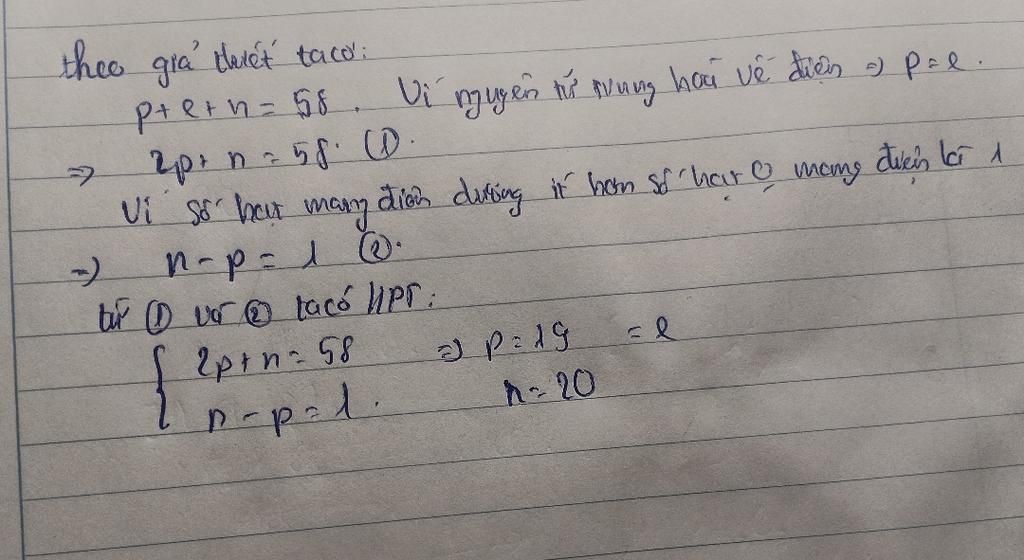 theo giả thiết ta có:
p+e+n = 58. Vì nguyên tử trung hoà về điện => p=e.
=> 2p+ n = 58. ①.
Vì số hạt mang điện dương ít hơn số hạt ko mang điện là 1
=> n - p = 1 ②.
từ ① và ② ta có HPT:
{ 2p+n = 58 => p = 19 = e
n - p = 1. n = 20